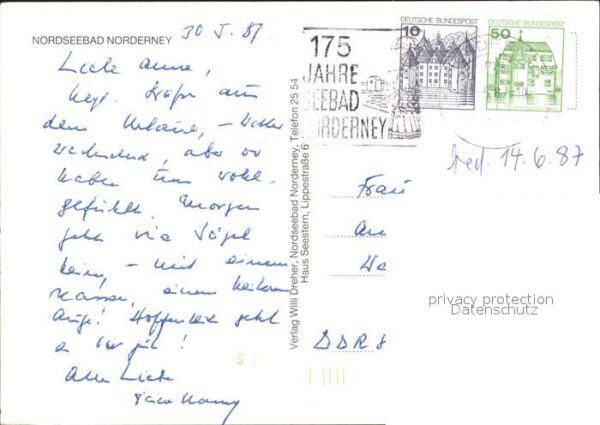 NORDSEEBAD NORDERNEY
30 5. 87
Liebe Anne,
herzl. Grüße aus
dem Urlaub, – Wetter
wechselnd, aber wir
haben uns wohl
gefühlt. Morgen
geht via Vögel
heim, – mit einem
nassen, einem heiteren
Auge! Hoffentlich geht
es Dir gut!
Alles Liebe
Verlag Willi Dreher, Nordseebad Norderney, Telefon 25 54
Haus Seestern, Lippestraße 6
175
JAHRE
SEEBAD
NORDERNEY
10
DEUTSCHE BUNDESPOST
50
DEUTSCHE BUNDESPOST
14.6.87
Frau
An
We
DDR 8
privacy protection
Datenschutz